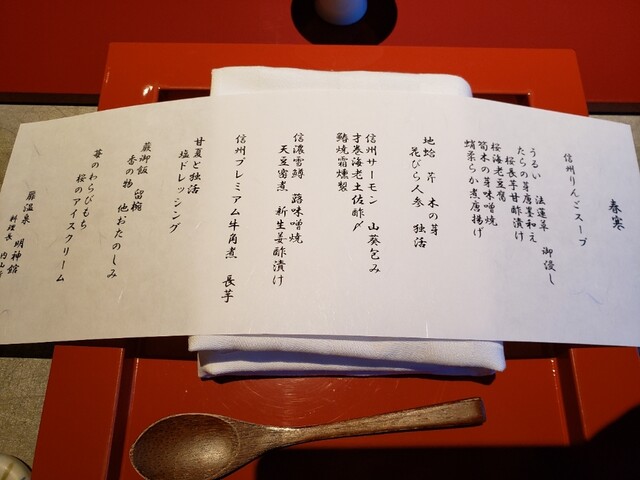 春寒
信州りんごスープ
うるい 法蓮草 御浸し
たらの芽唐墨和え
桜長芋甘酢漬け
桜海老豆腐
筍木の芽味噌焼
蛸柔らか煮唐揚げ
地蛤 芹 木の芽
花びら人参 独活
信州サーモン 山葵包み
才巻海老土佐酢〆
鰆焼霜燻製
信濃雪鱒 蕗味噌焼
天豆蜜煮 新生姜酢漬け
信州プレミアム牛角煮 長芋
甘夏と独活
塩ドレッシング
蕨御飯 留椀
香の物 他おたのしみ
苺のわらびもち
桜のアイスクリーム
扉温泉 明神館
料理長 内山